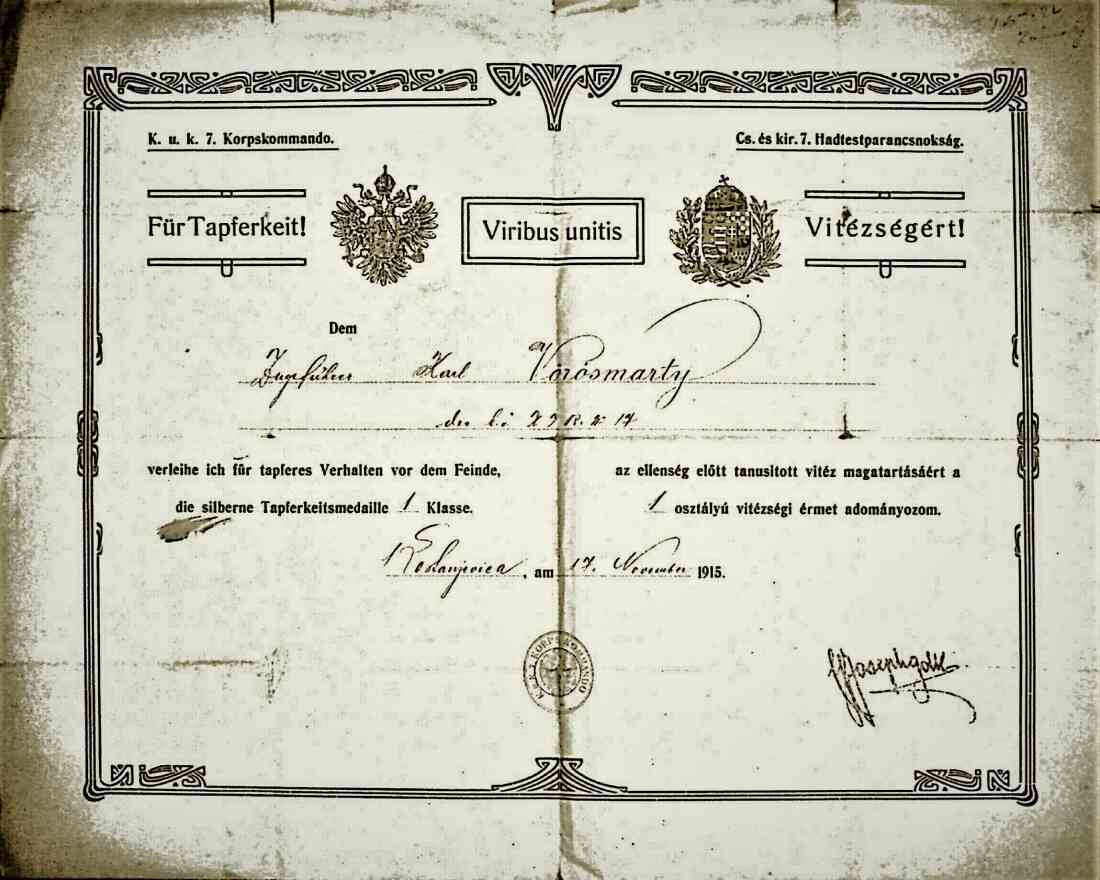 K. u. k. 7. Korpskommando.
Cs. és kir. 7. Hadtestparancsnokság.
Für Tapferkeit!
Viribus unitis
Vitézségért!
Dem
Zugsführer Karl Vörösmarty
des k. u. I. R. № 17
verleihe ich für tapferes Verhalten vor dem Feinde,
die silberne Tapferkeitsmedaille 1 Klasse.
az ellenség előtt tanusitott vitéz magatartásáért a
1 osztályú vitézségi érmet adományozom.
Kostanjevica, am 17. November 1915.
K.u.K. 7. KORPSKOMMANDO